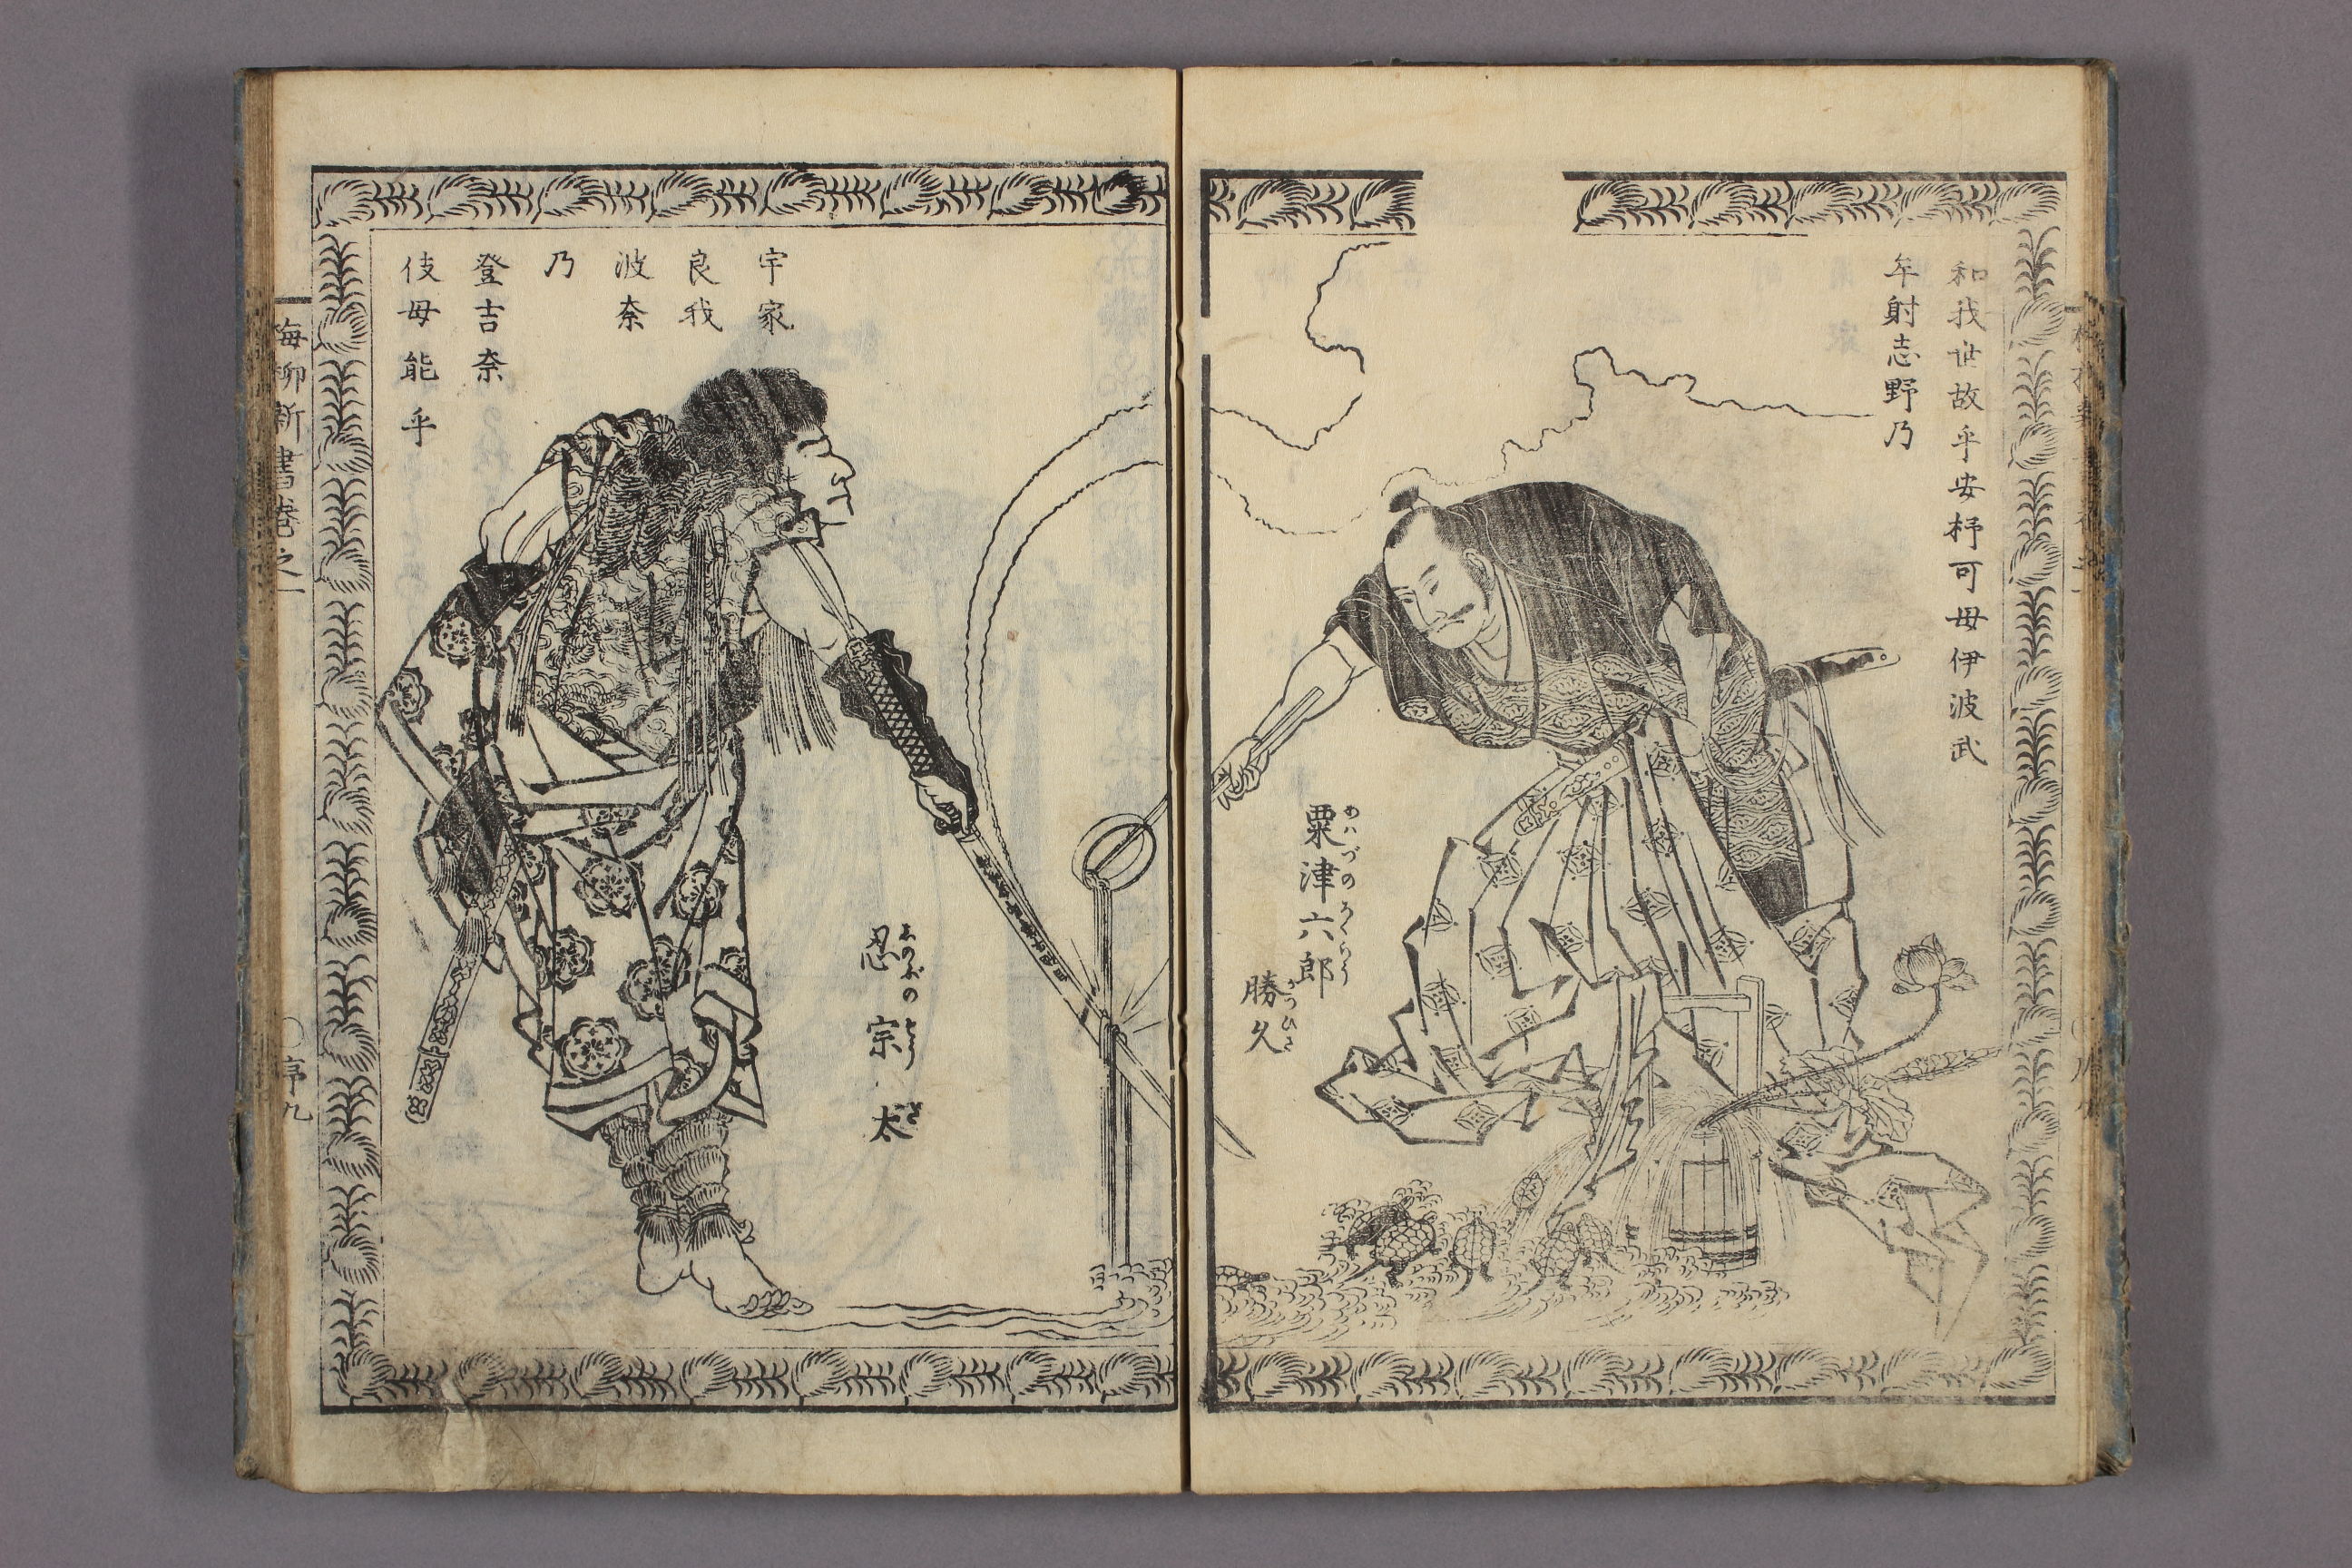 和我世故乎安杼可母伊波武
牟射志野乃
粟津六郎
あはづのろくらう
勝久
かつひさ
宇家
良我
波奈
乃
登吉奈
伎母能乎
忍宗太
しのぶのそうだ
梅柳新書巻之一
○序九